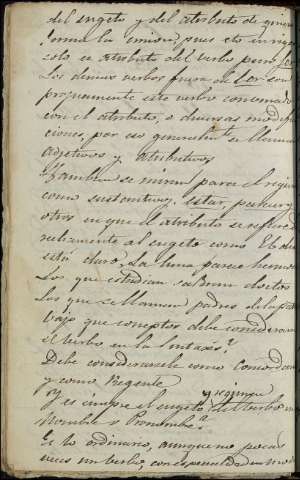 del sugeto y del atributo de quien
toma la                  pues eto en rigor
solo es atributo del verbo puro Ser.
Los demas verbos fuera de Ser son
propiamente este verbo convinado
con el atributo, o diversas modifi
caciones, por eso generalmte se llaman
adjetivos y atributivos
Tambien se miran para el regimen
como sustantivos, estar, parecer y
otros en que el atributo se refiere di
rectamente al sugeto como El dia
está claro, La luna parece hermosa
Los que estudian saldran doctos
Los que se llaman padres de la patria
Bajo que conceptos debe considerarse
el Verbo en la Sintaxis?
Debe considerarsele como Concordante
y como Regente
Y es siempre el sugeto del verbo un
Nombre o Pronombre
Es lo ordinario, aunque no pocas
veces un verbo, con especialidad en modo